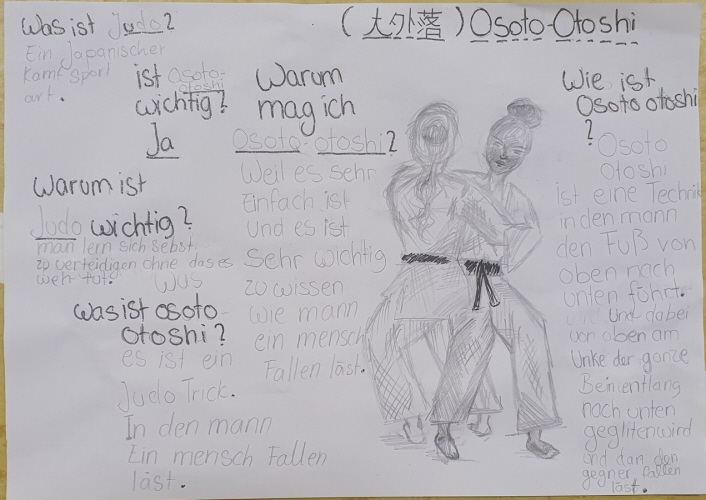 (大外落) Osoto-Otoshi
Was ist Judo?
Ein Japanischer
Kampf sport
art.
ist Osoto-
otoshi
wichtig?
Ja
Warum ist
Judo wichtig?
man lern sich selbst
zu verteidigen ohne das es
weh tut.
Was
was ist osoto
otoshi?
es ist ein
Judo Trick.
In den mann
Ein mensch Fallen
läst.
Warum
mag ich
Osoto-otoshi?
Weil es sehr
Einfach ist
und es ist
Sehr wichtig
zu wissen
wie mann
ein mensch
Fallen läst.
Wie ist
Osoto otoshi
?
Osoto
Otoshi
ist eine Technik
in den mann
den Fuß von
oben nach
unten führt.
Und dabei
von oben am
Linke der ganze
Bein entlang
nach unten
geglitenwird
und dan den
gegner fallen
läst.